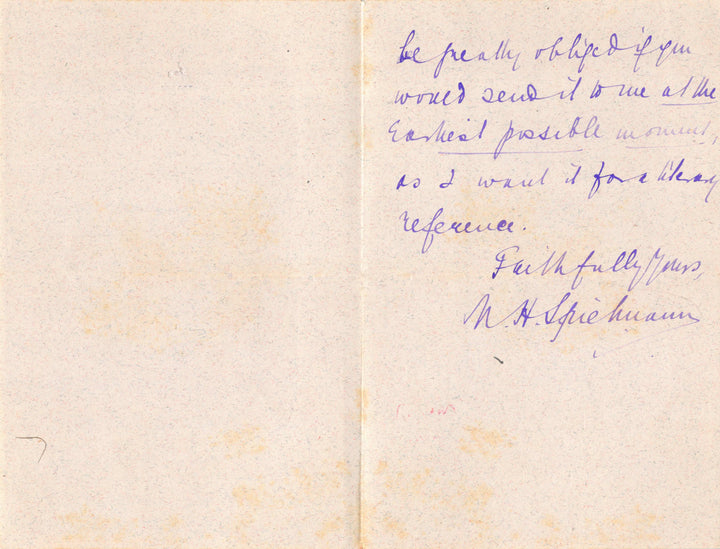 be greatly obliged if you
would send it to me at the
Earliest possible moment,
as I want it for a literary
reference.
Faithfully Yours,
M. H. Spielmann